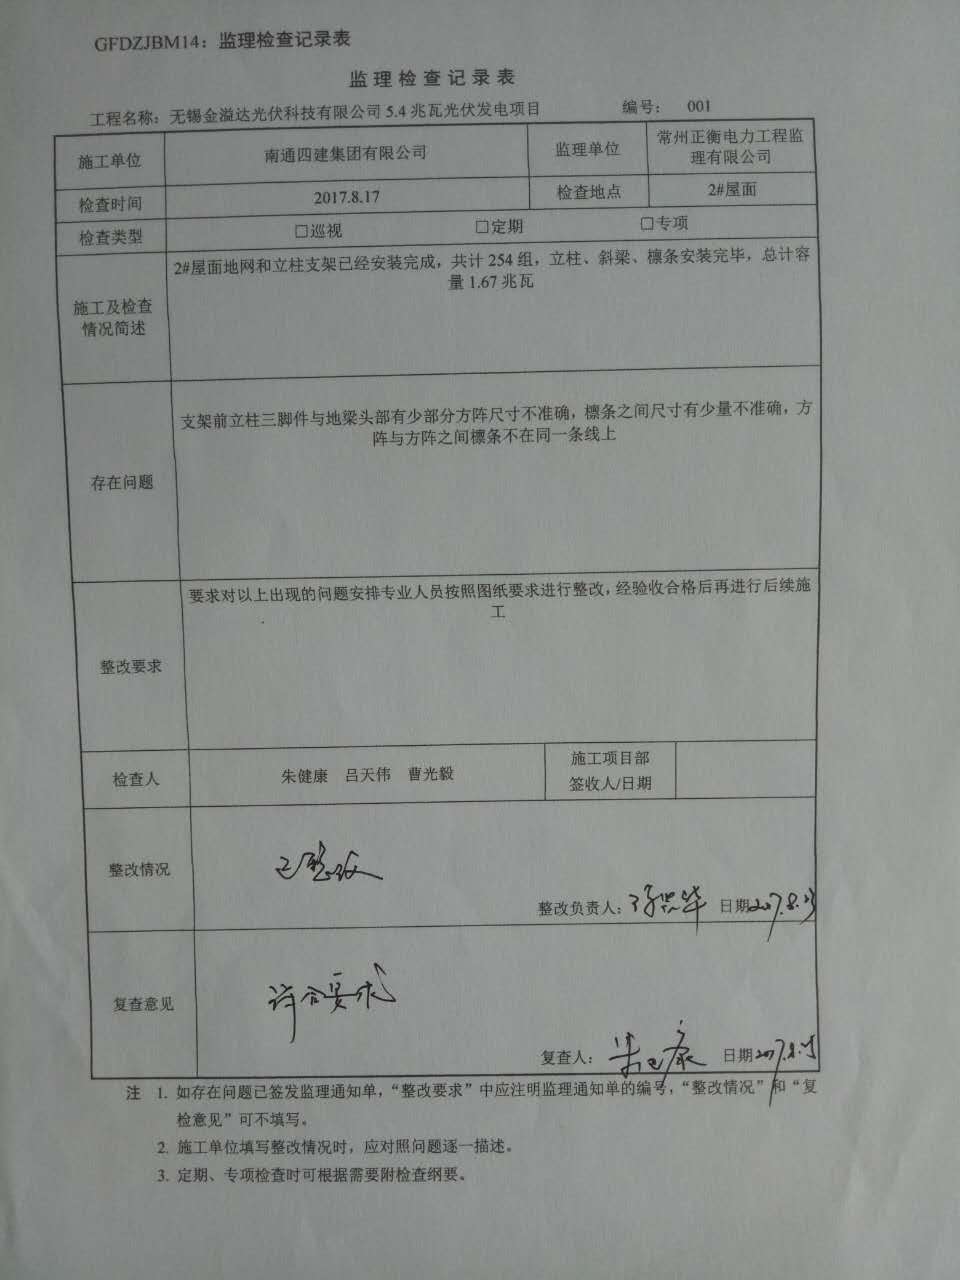 GFDZJBM14：监理检查记录表
监理检查记录表
工程名称：无锡金溢达光伏科技有限公司5.4兆瓦光伏发电项目 编号： 001
施工单位 南通四建集团有限公司 监理单位 常州正衡电力工程监
理有限公司
检查时间 2017.8.17 检查地点 2#屋面
检查类型 □巡视 □定期 □专项
施工及检查
情况简述
2#屋面地网和立柱支架已经安装完成，共计254组，立柱、斜梁、檩条安装完毕，总计容
量1.67兆瓦
存在问题
支架前立柱三脚件与地梁头部有少部分方阵尺寸不准确，檩条之间尺寸有少量不准确，方
阵与方阵之间檩条不在同一条线上
整改要求
要求对以上出现的问题安排专业人员按照图纸要求进行整改，经验收合格后再进行后续施
工
检查人 朱健康 吕天伟 曹光毅
施工项目部
签收人/日期
整改情况
已整改
整改负责人： 日期2017.8.23
复查意见
符合要求
复查人： 日期2017.8.25
注 1. 如存在问题已签发监理通知单，“整改要求”中应注明监理通知单的编号，“整改情况”和“复
检意见”可不填写。
2. 施工单位填写整改情况时，应对照问题逐一描述。
3. 定期、专项检查时可根据需要附检查纲要。